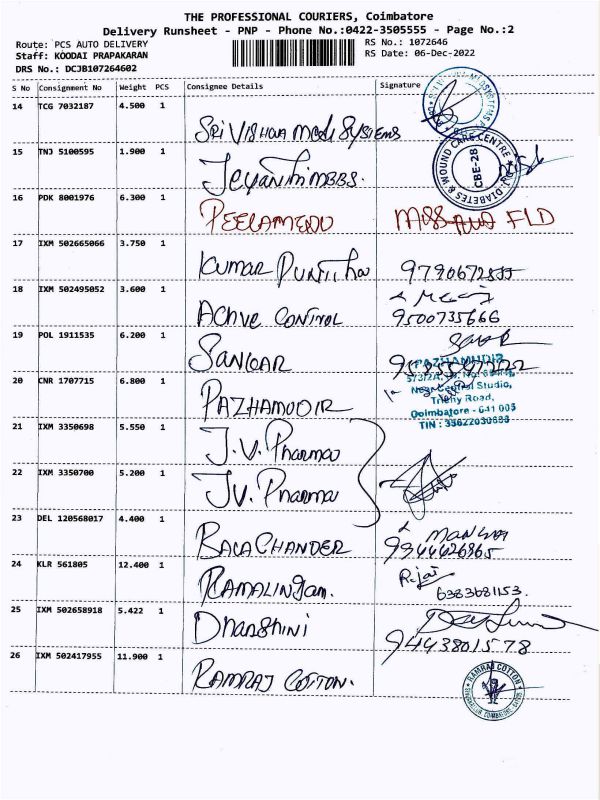 THE PROFESSIONAL COURIERS, Coimbatore
Delivery Runsheet - PNP - Phone No.:0422-3505555 - Page No.:2
Route: PCS AUTO DELIVERY
RS No.: 1072646
Staff: KOODAI PRAPAKARAN
RS Date: 06-Dec-2022
DRS No.: DCJB107264602
S No Consignment No Weight PCS Consignee Details Signature
14 TCG 7032187 4.500 1
SRI Systems
15 TNJ 5100595 1.900 1
DIABETES & WOUND CARE CENTRE
CBE-28
16 PDK 8001976 6.300 1
PEELAMEDU FLD
17 IXM 502665066 3.750 1
KUMAR
18 IXM 502495052 3.600 1
Active CONTROL 9500735666
19 POL 1911535 6.200 1
SANKAR
20 CNR 1707715 6.800 1
PAZHAMUDIR
PAZHAMUDIR
Near Central Studio,
Trichy Road,
Coimbatore - 641 005
21 IXM 3350698 5.550 1
J.V. Pharma
22 IXM 3350700 5.200 1
JV. Pharma
23 DEL 120568017 4.400 1
BALACHANDER
24 KLR 561805 12.400 1
RAMALINGAM. 6383681153.
25 IXM 502658918 5.422 1
Dharshini 9443801578
26 IXM 502417955 11.900 1
RAMRAJ COTTON.
RAMRAJ COTTON